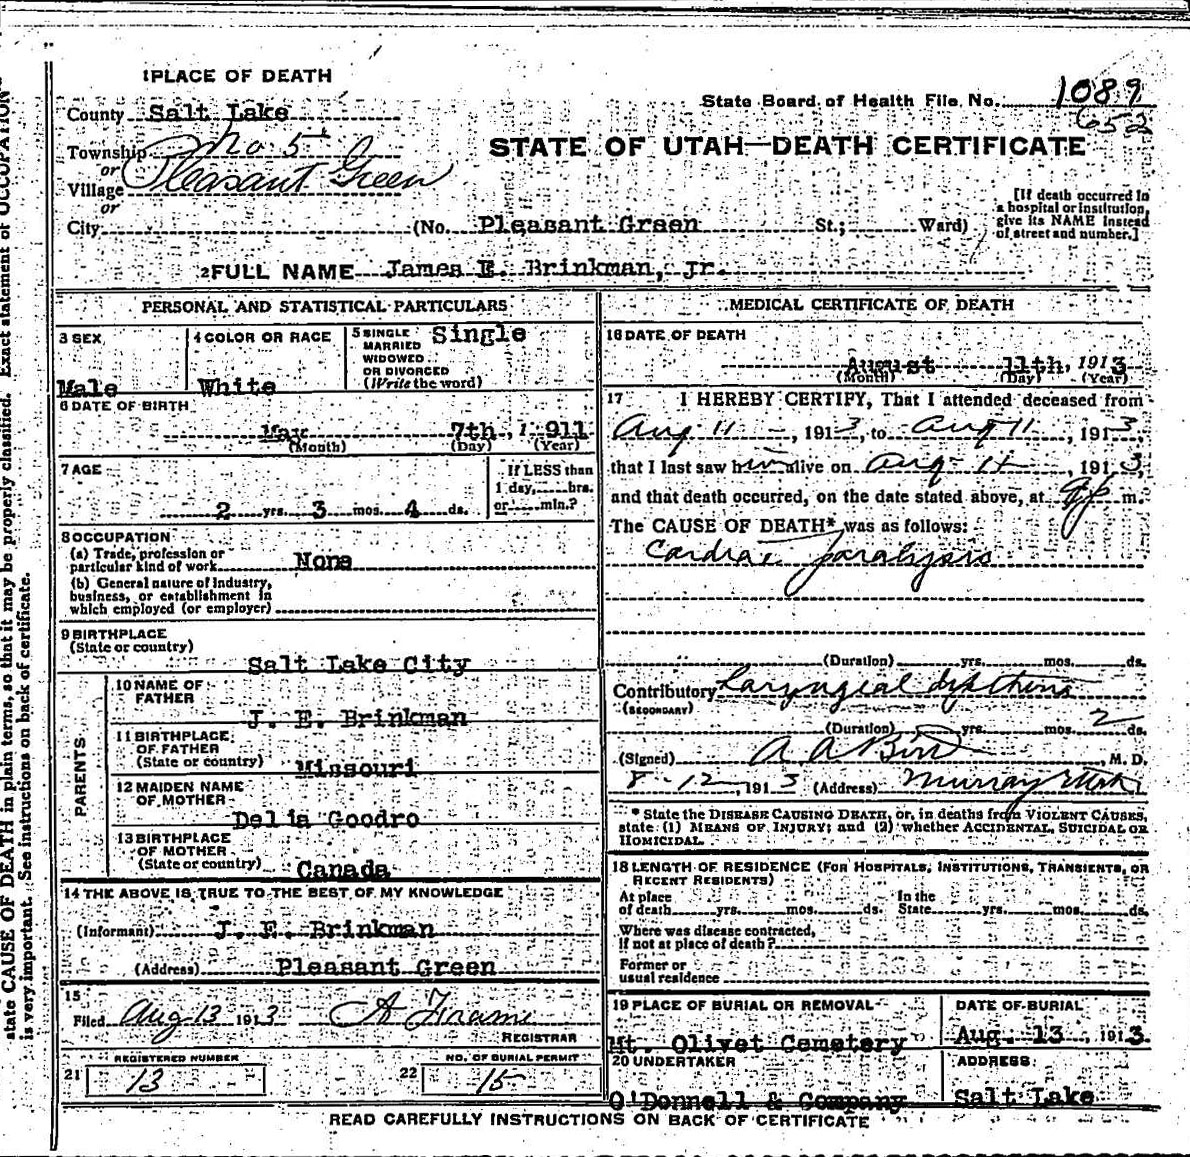 1 PLACE OF DEATH
County Salt Lake
State Board of Health File No. 1089
652
Township No. 5
or
Village Pleasant Green
or
STATE OF UTAH—DEATH CERTIFICATE
City (No. Pleasant Green St.; Ward)
[If death occurred in
a hospital or institution,
give its NAME instead
of street and number.]
2 FULL NAME James E. Brinkman, Jr.
PERSONAL AND STATISTICAL PARTICULARS
3 SEX
Male
4 COLOR OR RACE
White
5 SINGLE
MARRIED
WIDOWED
OR DIVORCED
(Write the word)
Single
6 DATE OF BIRTH
May 7th, 1911
(Month) (Day) (Year)
7 AGE
2 yrs. 3 mos. 4 ds.
If LESS than
1 day, hrs.
or min.?
8 OCCUPATION
(a) Trade, profession or
particular kind of work None
(b) General nature of Industry,
business, or establishment in
which employed (or employer)
9 BIRTHPLACE
(State or country)
Salt Lake City
PARENTS
10 NAME OF
FATHER
J. E. Brinkman
11 BIRTHPLACE
OF FATHER
(State or country)
Missouri
12 MAIDEN NAME
OF MOTHER
Delia Goodro
13 BIRTHPLACE
OF MOTHER
(State or country)
Canada
14 THE ABOVE IS TRUE TO THE BEST OF MY KNOWLEDGE
(Informant) J. E. Brinkman
(Address) Pleasant Green
15
Filed Aug 13 1913 A
REGISTRAR
REGISTERED NUMBER
21 13
NO. OF BURIAL PERMIT
22 15
MEDICAL CERTIFICATE OF DEATH
16 DATE OF DEATH
August 11th, 1913
(Month) (Day) (Year)
17 I HEREBY CERTIFY, That I attended deceased from
Aug 11, 1913, to Aug 11, 1913,
that I last saw him alive on Aug. 11, 1913,
and that death occurred, on the date stated above, at m.
The CAUSE OF DEATH* was as follows:
Cardiac paralysis
(Duration) yrs. mos. ds.
Contributory Laryngeal diphtheria
(SECONDARY)
(Duration) yrs. mos. 2 ds.
(Signed) A A Bird, M. D.
8-12, 1913 (Address) Murray Utah
* State the DISEASE CAUSING DEATH, or, in deaths from VIOLENT CAUSES,
state (1) MEANS OF INJURY; and (2) whether ACCIDENTAL, SUICIDAL OR
HOMICIDAL.
18 LENGTH OF RESIDENCE (FOR HOSPITALS, INSTITUTIONS, TRANSIENTS, OR
RECENT RESIDENTS)
At place
of death yrs. mos. ds.
In the
State yrs. mos. ds.
Where was disease contracted,
if not at place of death?
Former or
usual residence
19 PLACE OF BURIAL OR REMOVAL
Mt. Olivet Cemetery
DATE OF BURIAL
Aug. 13, 1913.
20 UNDERTAKER
O'Donnell & Company
ADDRESS
Salt Lake
READ CAREFULLY INSTRUCTIONS ON BACK OF CERTIFICATE
state CAUSE OF DEATH in plain terms, so that it may be properly classified. Exact statement of OCCUPATION
is very important. See instructions on back of certificate.